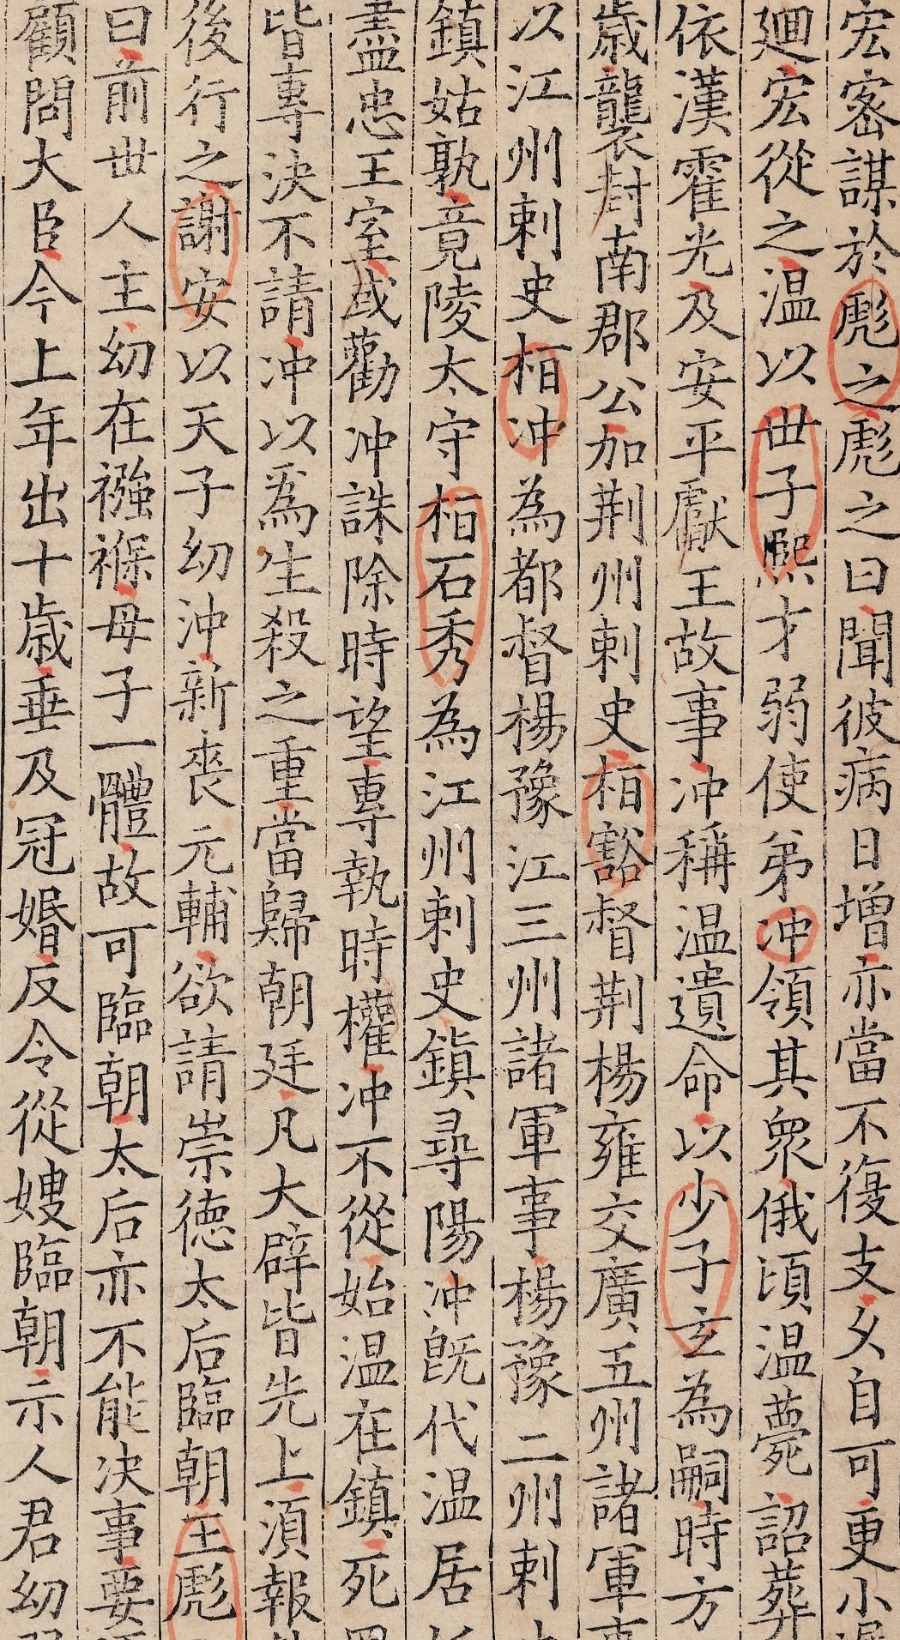 宏密謀於彪之彪之曰聞彼病日增亦當不復支久自可更小
廻宏從之温以世子熙才弱使弟冲領其衆俄頃温薨詔葬
依漢霍光及安平獻王故事冲稱温遺命以少子玄為嗣時方
歳襲封南郡公加荆州刺史栢豁督荆楊雍交廣五州諸軍事
以江州刺史栢冲為都督楊豫江三州諸軍事楊豫二州刺
鎮姑孰竟陵太守栢石秀為江州刺史鎮尋陽冲旣代温居
盡忠王室或勸冲誅除時望專執時權冲不從始温在鎮死
皆專決不請冲以爲生殺之重當歸朝廷凡大辟皆先上湏報
後行之謝安以天子幼冲新喪元輔欲請崇德太后臨朝王彪
曰前世人主幼在襁褓母子一體故可臨朝太后亦不能决事要
顧問大臣今上年出十歳垂及冠婚反令從嫂臨朝示人君幼